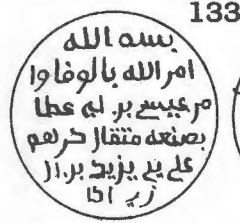 133
بسم الله
امر الله بالوفا وا
مر عيسى بن ابي عطا
بصنعه مثقال درهم
على يدي يزيد بن ا